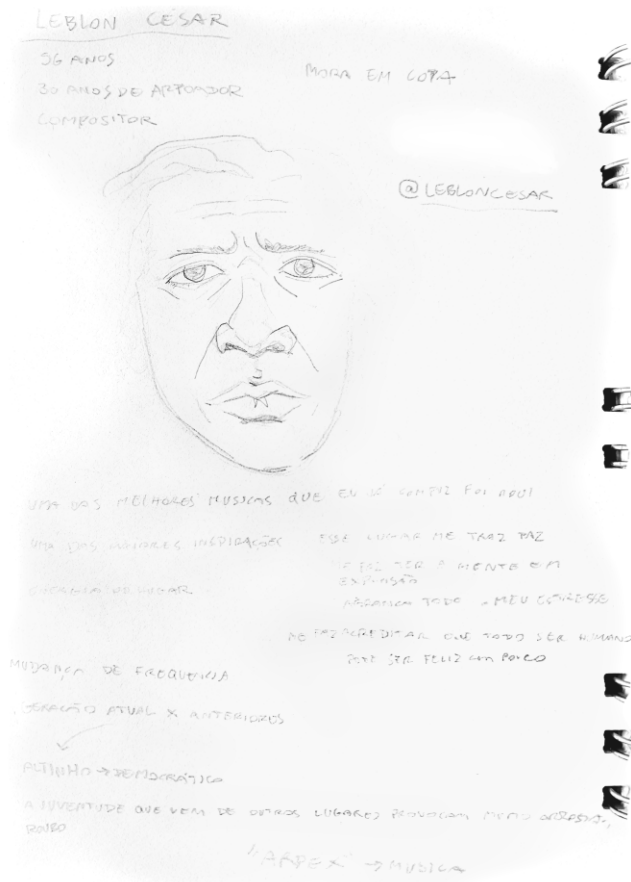 LEBLON CESAR
56 ANOS
MORA EM COPA
30 ANOS DE ARPOADOR
COMPOSITOR
@LEBLONCESAR
UMA DAS MELHORES MUSICAS QUE EU JÁ COMPUZ FOI AQUI
UMA DAS MAIORES INSPIRAÇÕES
ESSE LUGAR ME TRAZ PAZ
ME FAZ TER A MENTE EM
EXPANSÃO
ENERGIA DO LUGAR
TODO O MEU ESTRESSE
ME FAZ ACREDITAR QUE TODO SER HUMANO
PODE SER FELIZ COM POUCO
MUDANÇA DE FREQUENCIA
GERAÇÃO ATUAL X ANTERIORES
ALTINHO → DEMOCRÁTICO
A JUVENTUDE QUE VEM DE OUTROS LUGARES PROVOCAM MEDO
ROUBO
"ARPEX" → MUSICA